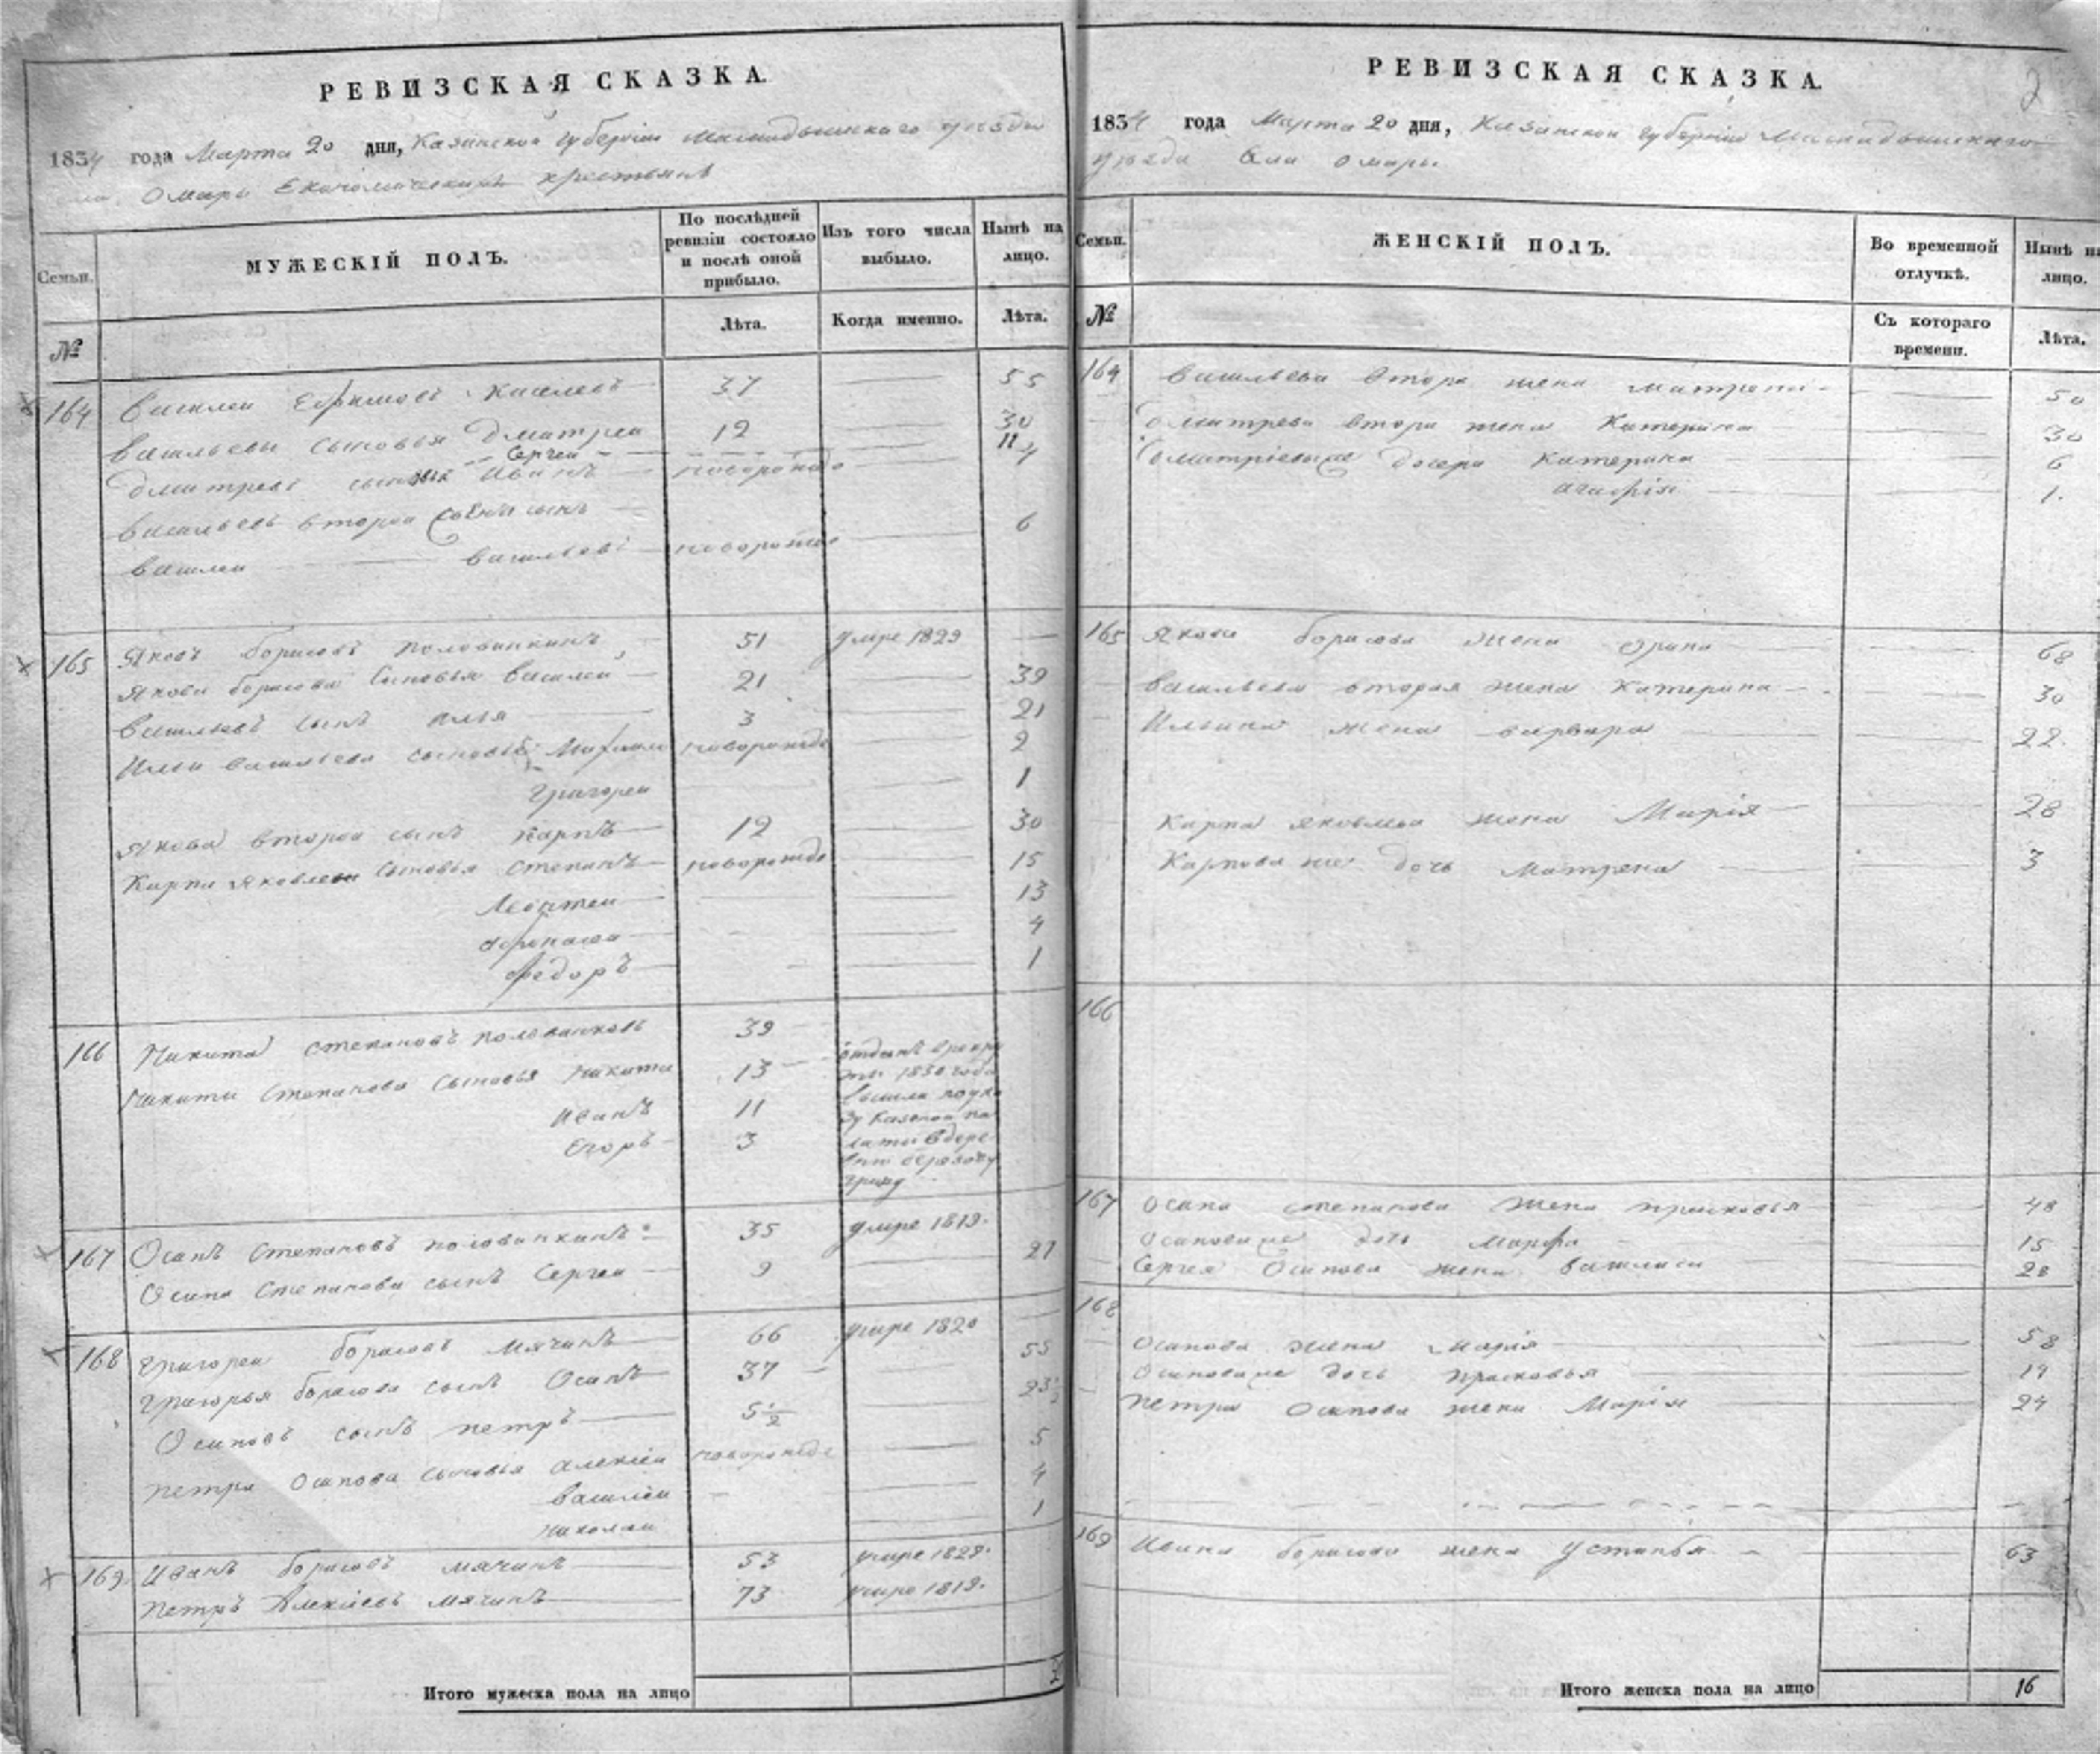 РЕВИЗСКАЯ СКАЗКА.
1834 года Марта 20 дня, Казанской губернии Мамадышскаго уезда
Омары Економических крестьянъ
Семьи.
МУЖЕСКІЙ ПОЛЪ.
По послѣдней ревизіи состояло и послѣ оной прибыло.
Изъ того числа выбыло.
Нынѣ на лицо.
№
Лѣта.
Когда именно.
Лѣта.
164 Василеи Ефимовъ Киселевъ 37 55
Васильевы сыновья Дмитреи 12 30
Сергеи 11
Дмитревъ сынъ Иванъ новорожде 4
Васильевъ второи сынъ
Василеи Васильевъ новорожде 6
165 Яковъ борисовъ половинкинъ 51 умре 1829
Якова борисова Сыновья Василеи 21 39
Васильевъ сынъ Илья 3 21
Ильи васильева сыновья новорожде 2
Григореи 1
Якова второи сынъ Карпъ 12 30
Карпа Яковлева Сыновья Степанъ новорожде 15
Леонтеи 13
Афонасеи 4
Федоръ 1
166 Никита степановъ половинкинъ 39
Никиты Степанова Сыновья Никита 13
Иванъ 11
Егоръ 3
отданъ в рекру
1830 года
вышли по ука
зу Казеной па
латы в дере
вню березову
гриву
167 Осипъ Степановъ половинкинъ 35 умре 1819.
Осипа Степанова сынъ Сергеи 9 27
168 Григореи борисовъ Мячинъ 66 умре 1820
Григорья борисова сынъ Осипъ 37 55
Осиповъ сынъ петръ 5 1/2 23 1/2
петра Осипова сыновья Алексеи новорожде 5
Василеи 4
Николаи 1
169. Иванъ борисовъ мячинъ 53 умре 1829.
петръ Алексіевъ мячинъ 73 умре 1819.
Итого мужеска пола на лицо
РЕВИЗСКАЯ СКАЗКА.
2
1834 года Марта 20 дня, Казанскои губерніи Мамадышскаго
уезда Села Омары.
Семьи.
ЖЕНСКІЙ ПОЛЪ.
Во временной отлучкѣ.
Нынѣ на лицо.
№
Съ котораго времени.
Лѣта.
164 Васильева втора жена матрена 50
Дмитрева втора жена Катерина 30
Дмитріевы же дочери Катерина 6
Агафія 1.
165 Якова борисова жена Орина 68
Васильева вторая жена Катерина 30
Ильина жена варвара 22.
Карпа яковлева жена Марія 28
Карпова же дочь Матрена 3
166
167 Осипа степанова жена прасковья 48
Осипова же дочь Марфа 15
Сергея Осипова жена Василиса 28
168
Осипова жена Марія 58
Осипова же дочь прасковья 19
петра Осипова жена Марія 24
169 Ивана борисова жена Устинья 63
Итого женска пола на лицо 16